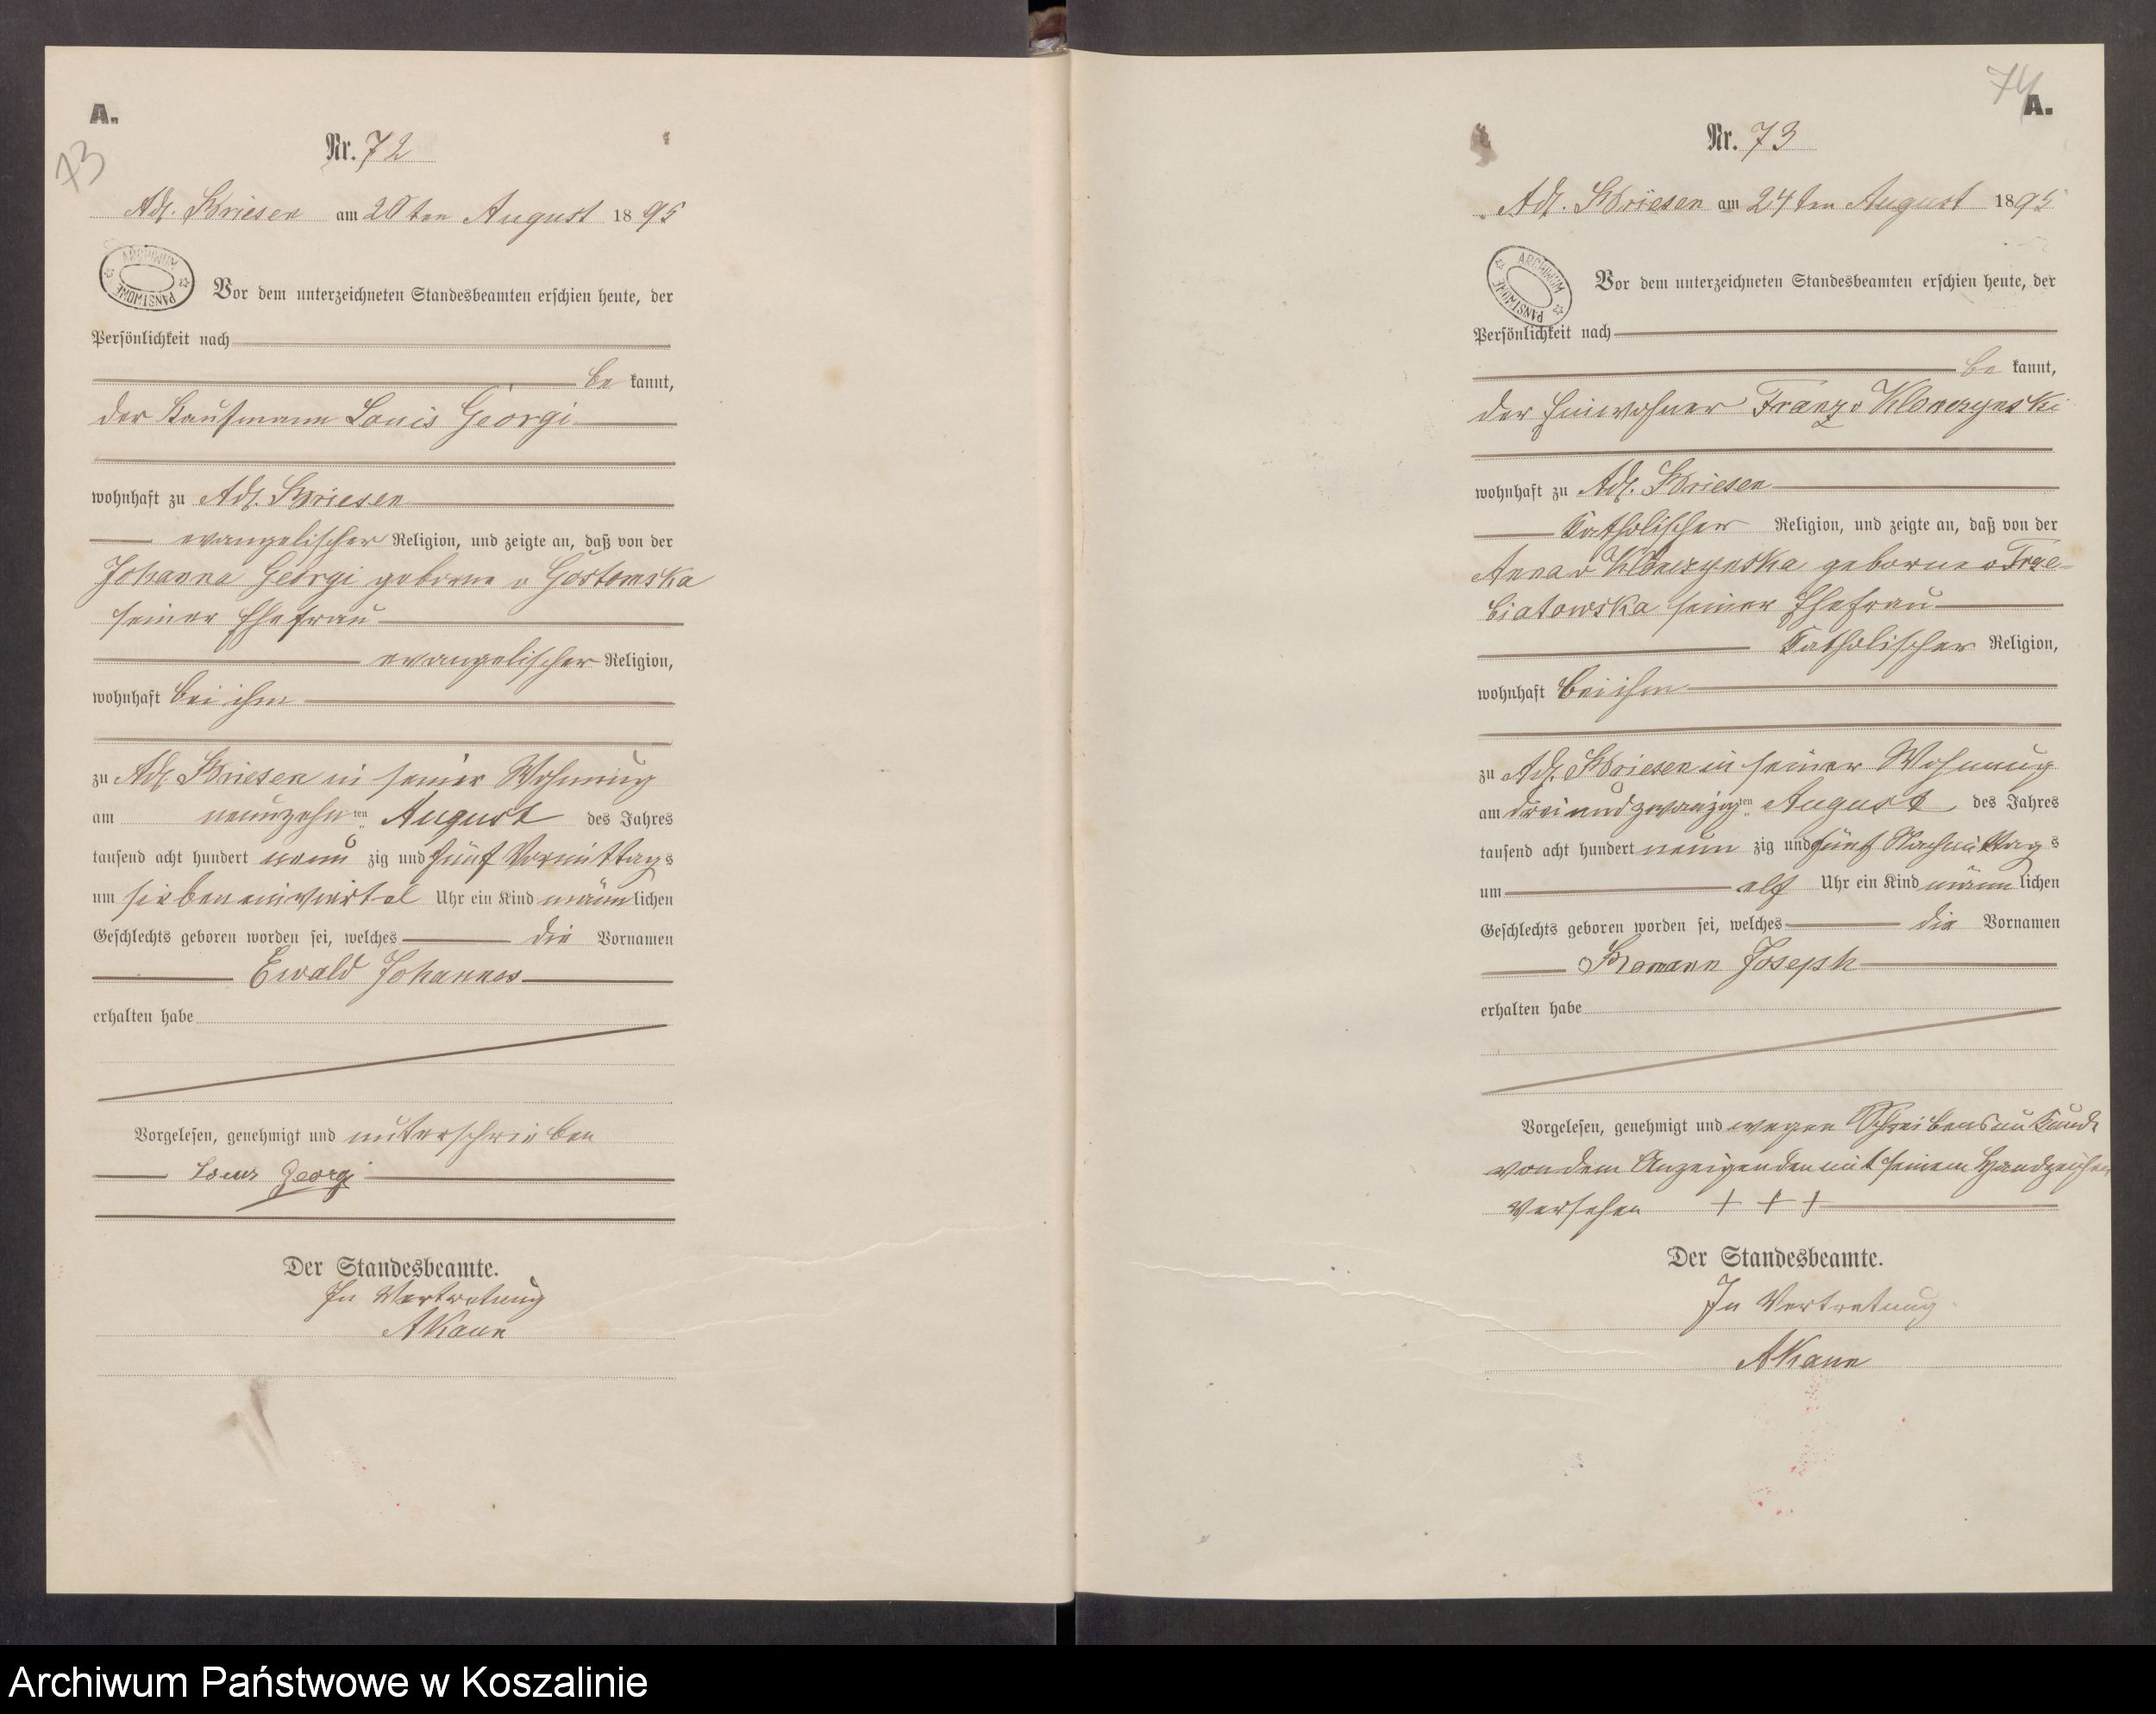 A.
73
Nr. 72
Adl. Briesen am 20ten August 1895
ARCHIWUM PAŃSTWOWE
Vor dem unterzeichneten Standesbeamten erschien heute, der
Persönlichkeit nach
be kannt,
der Kaufmann Louis Georgi
wohnhaft zu Adl. Briesen
evangelischer Religion, und zeigte an, daß von der
Johanna Georgi geborne v Gostomska
seiner Ehefrau
evangelischer Religion,
wohnhaft bei ihm
zu Adl. Briesen in seiner Wohnung
am neunzehn ten August des Jahres
tausend acht hundert neun zig und fünf Vormittags
um sieben einviertel Uhr ein Kind männlichen
Geschlechts geboren worden sei, welches die Vornamen
Ewald Johannes
erhalten habe
Vorgelesen, genehmigt und unterschrieben
Louis Georgi
Der Standesbeamte.
In Vertretung
74
A.
Nr. 73
Adl. Briesen am 24ten August 1895
ARCHIWUM PAŃSTWOWE
Vor dem unterzeichneten Standesbeamten erschien heute, der
Persönlichkeit nach
be kannt,
der Einwohner Franz v Klonczynski
wohnhaft zu Adl. Briesen
katholischer Religion, und zeigte an, daß von der
Anna v Klonczynska geborne v Trze-
biatowska seiner Ehefrau
katholischer Religion,
wohnhaft bei ihm
zu Adl. Briesen in seiner Wohnung
am dreiundzwanzig ten August des Jahres
tausend acht hundert neun zig und fünf Nachmittags
um elf Uhr ein Kind männlichen
Geschlechts geboren worden sei, welches die Vornamen
Joseph
erhalten habe
Vorgelesen, genehmigt und wegen Schreibensunkunde
von dem Anzeigenden mit seinem Handzeichen
versehen + + +
Der Standesbeamte.
In Vertretung
Archiwum Państwowe w Koszalinie